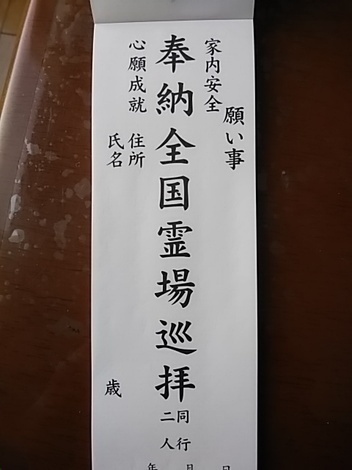 願い事
家内安全
奉納全国霊場巡拝
同行
二人
心願成就
住所
氏名
歳
年 月 日